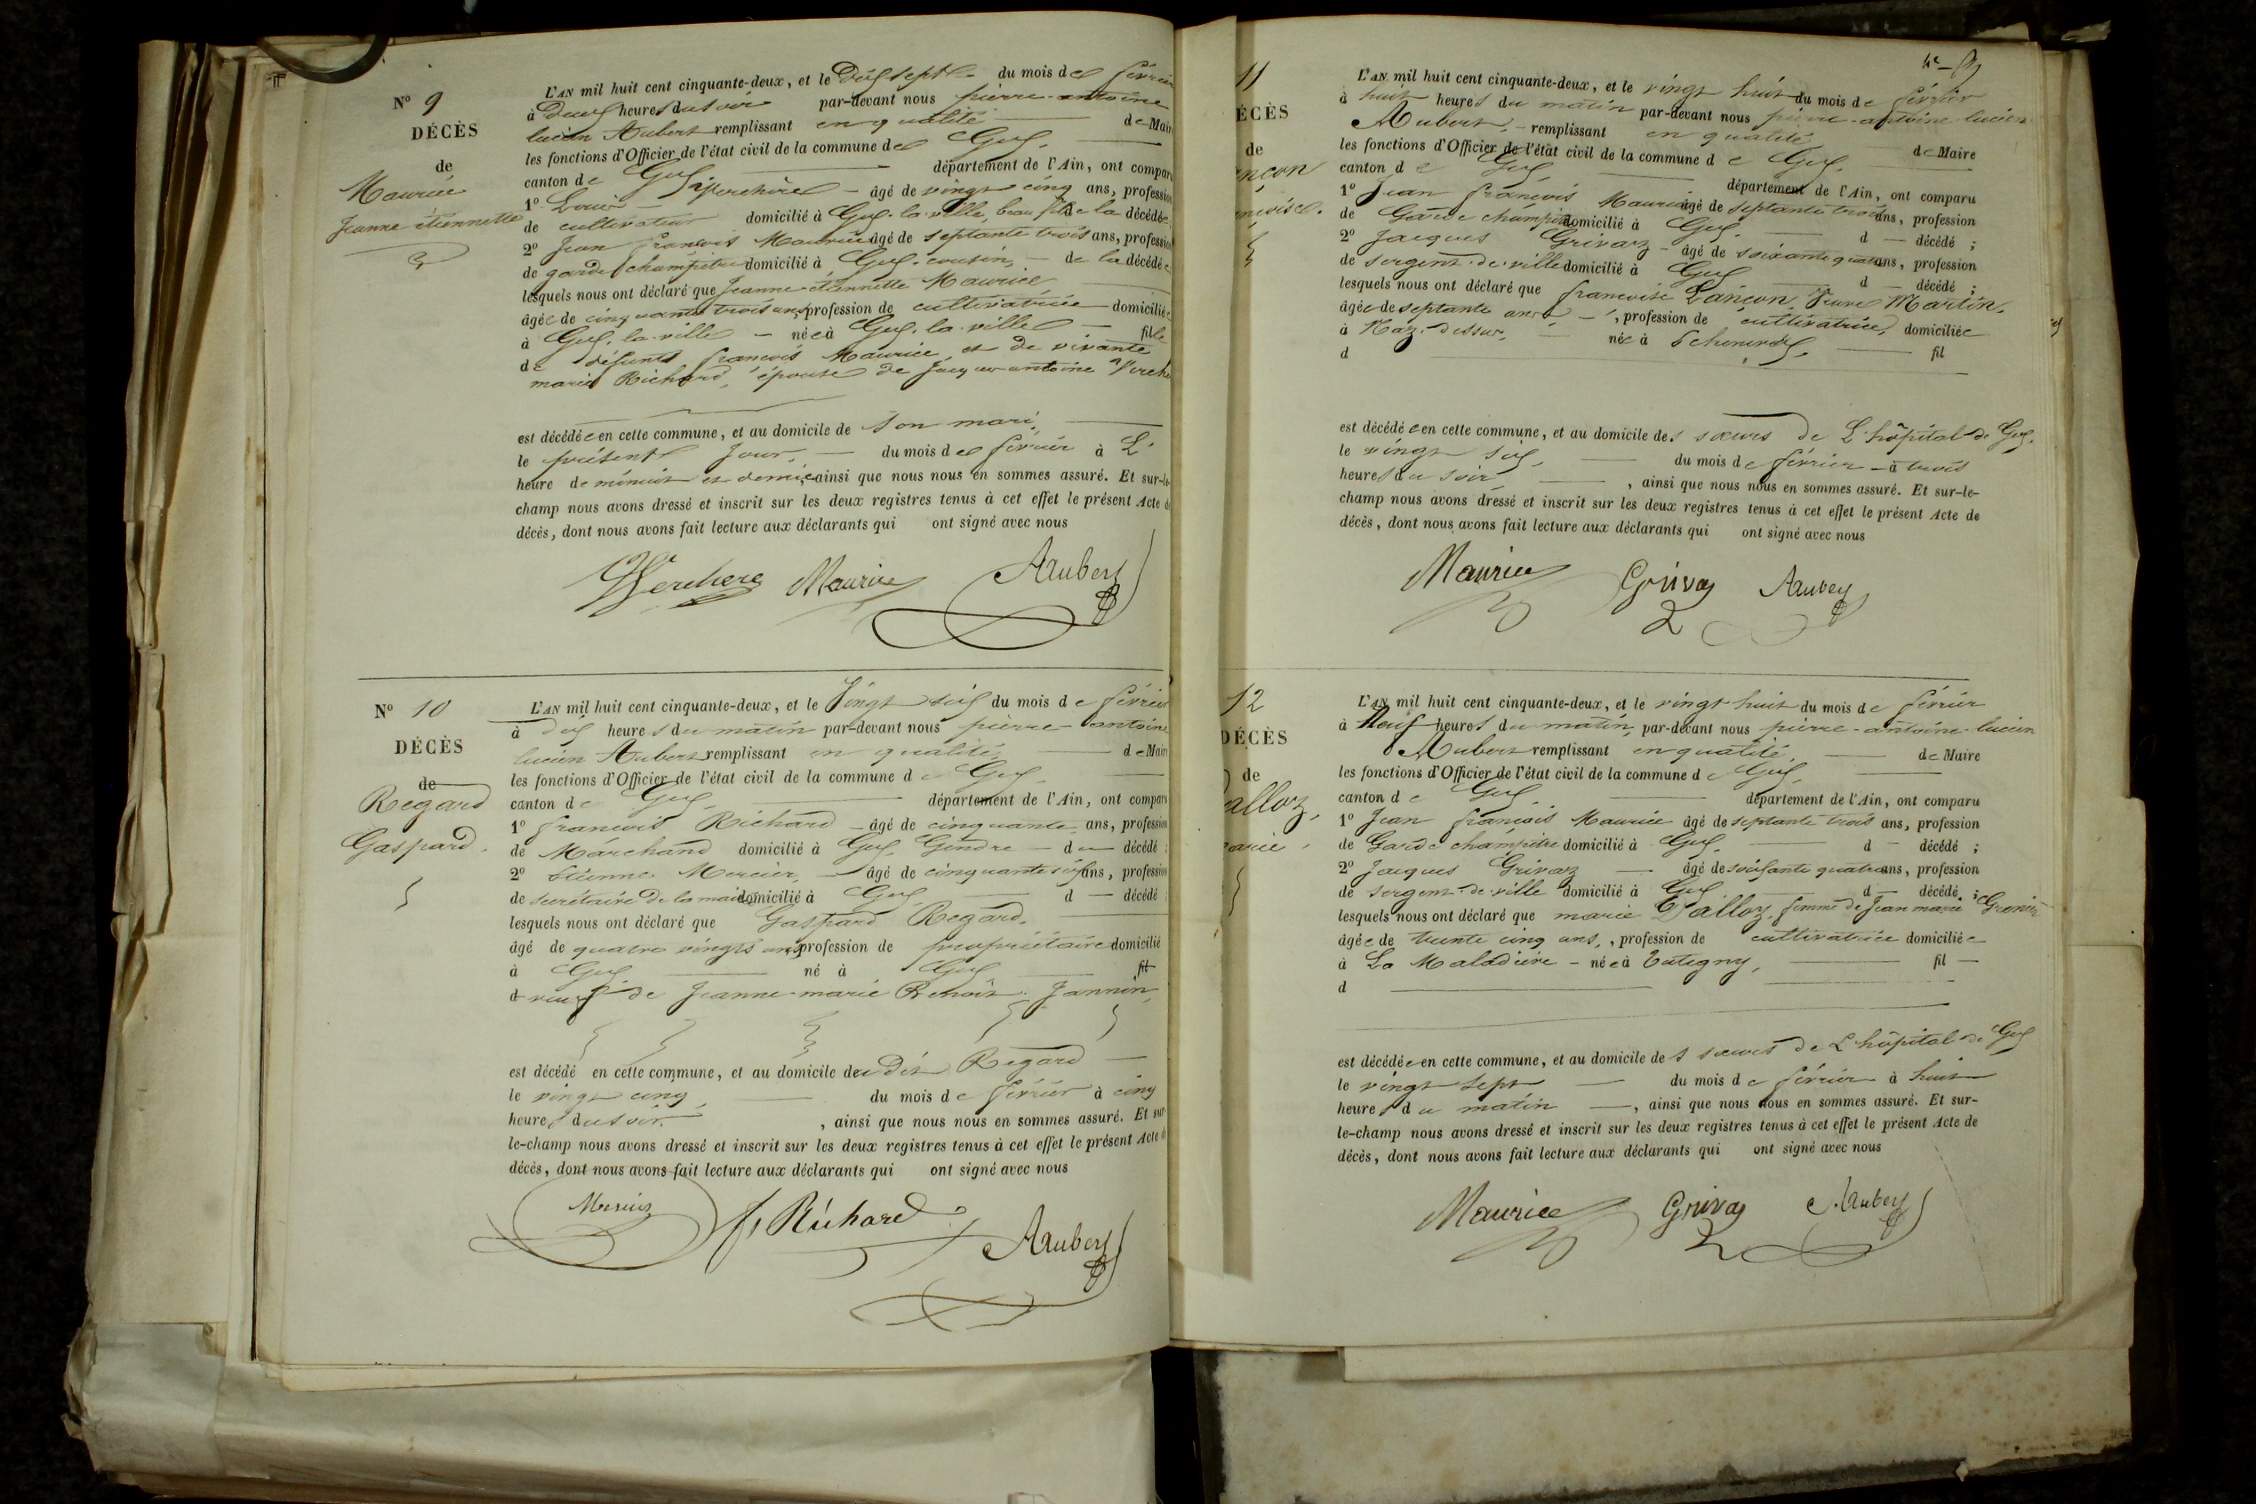 N° 9
DÉCÈS
de
Maurice
Jeanne étiennette
L'AN mil huit cent cinquante-deux, et le Dix sept du mois de février
à Deux heures du soir par-devant nous pierre-antoine
lucien Aubert remplissant en qualité de Maire
les fonctions d'Officier de l'état civil de la commune de Gex,
canton de Gex département de l'Ain, ont comparu
1° Louis Verchère âgé de vingt cinq ans, profession
de cultivateur domicilié à Gex-la-ville, beau fils de la décédée
2° Jean François Maurice âgé de septante trois ans, profession
de garde champêtre domicilié à Gex. cousin, de la décédée
lesquels nous ont déclaré que Jeanne étiennette Maurice
âgée de cinquante trois ans, profession de cultivatrice domiciliée
à Gex. la-ville née à Gex. la ville fille
de défunt françois Maurice, et de vivante
marie Richard, épouse de Jacques antoine Verch
est décédée en cette commune, et au domicile de son mari,
le présent Jour, du mois de février à L'
heure de minuit et demie, ainsi que nous nous en sommes assuré. Et sur-le-
champ nous avons dressé et inscrit sur les deux registres tenus à cet effet le présent Acte de
décès, dont nous avons fait lecture aux déclarants qui ont signé avec nous
Verchere Maurice Aubert
N° 10
DÉCÈS
de
Regard
Gaspard.
L'AN mil huit cent cinquante-deux, et le Vingt six du mois de février
à dix heures du matin par-devant nous pierre-antoine
lucien Aubert remplissant en qualité de Maire
les fonctions d'Officier de l'état civil de la commune de Gex,
canton de Gex, département de l'Ain, ont comparu
1° francois Richard âgé de cinquante ans, profession
de Marchand domicilié à Gex, Gendre du décédé ;
2° Etienne Mercier, âgé de cinquante six ans, profession
de secrétaire de la mairie domicilié à Gex, d décédé ;
lesquels nous ont déclaré que Gaspard Regard,
âgé de quatre vingts ans, profession de propriétaire domicilié
à Gex né à Gex fil
d veuf de Jeanne-marie Benoit Jannin,
est décédé en cette commune, et au domicile de dit Regard
le vingt cinq, du mois de février à cinq
heures du soir, ainsi que nous nous en sommes assuré. Et sur
le-champ nous avons dressé et inscrit sur les deux registres tenus à cet effet le présent Acte de
décès, dont nous avons fait lecture aux déclarants qui ont signé avec nous
Mercier f, Richard Aubert
11
ÉCÈS
de
ançon
ançoise.
L'AN mil huit cent cinquante-deux, et le vingt huit du mois de février
à huit heures du matin par-devant nous pierre-antoine-lucien
Aubert, remplissant en qualité de Maire
les fonctions d'Officier de l'état civil de la commune de Gex,
canton de Gex département de l'Ain, ont comparu
1° Jean françois Maurice âgé de septante trois ans, profession
de Garde champêtre domicilié à Gex, d décédé ;
2° Jacques Grivaz âgé de soixante quatre ans, profession
de sergent-de-ville domicilié à Gex d décédé ;
lesquels nous ont déclaré que francoise Lançon, Veuve Martin,
âgée de septante ans, profession de cultivatrice, domiciliée
à Naz-dessus, née à Echenevex, fil
d
est décédée en cette commune, et au domicile des sœurs de L'hôpital de Gex.
le vingt six, du mois de février à trois
heures du soir, ainsi que nous nous en sommes assuré. Et sur-le-
champ nous avons dressé et inscrit sur les deux registres tenus à cet effet le présent Acte de
décès, dont nous avons fait lecture aux déclarants qui ont signé avec nous
Maurice Grivaz Aubert
12
DÉCÈS
de
alloz,
arie,
L'AN mil huit cent cinquante-deux, et le vingt huit du mois de février
à Neuf heures du matin, par-devant nous pierre-antoine-lucien
Aubert remplissant en qualité, de Maire
les fonctions d'Officier de l'état civil de la commune de Gex,
canton de Gex département de l'Ain, ont comparu
1° Jean françois Maurice âgé de septante trois ans, profession
de Garde champêtre domicilié à Gex, d décédé ;
2° Jacques Grivaz âgé de soixante quatre ans, profession
de sergent-de-ville domicilié à Gex d décédé ;
lesquels nous ont déclaré que marie alloz, femme de Jean marie Grenier
âgée de trente cinq ans, profession de cultivatrice domiciliée
à La Maladière née à Vutigny, fil
d
est décédée en cette commune, et au domicile des sœurs de L'hôpital de Gex
le vingt sept du mois de février à huit
heures du matin, ainsi que nous nous en sommes assuré. Et sur-
le-champ nous avons dressé et inscrit sur les deux registres tenus à cet effet le présent Acte de
décès, dont nous avons fait lecture aux déclarants qui ont signé avec nous
Maurice Grivaz Aubert